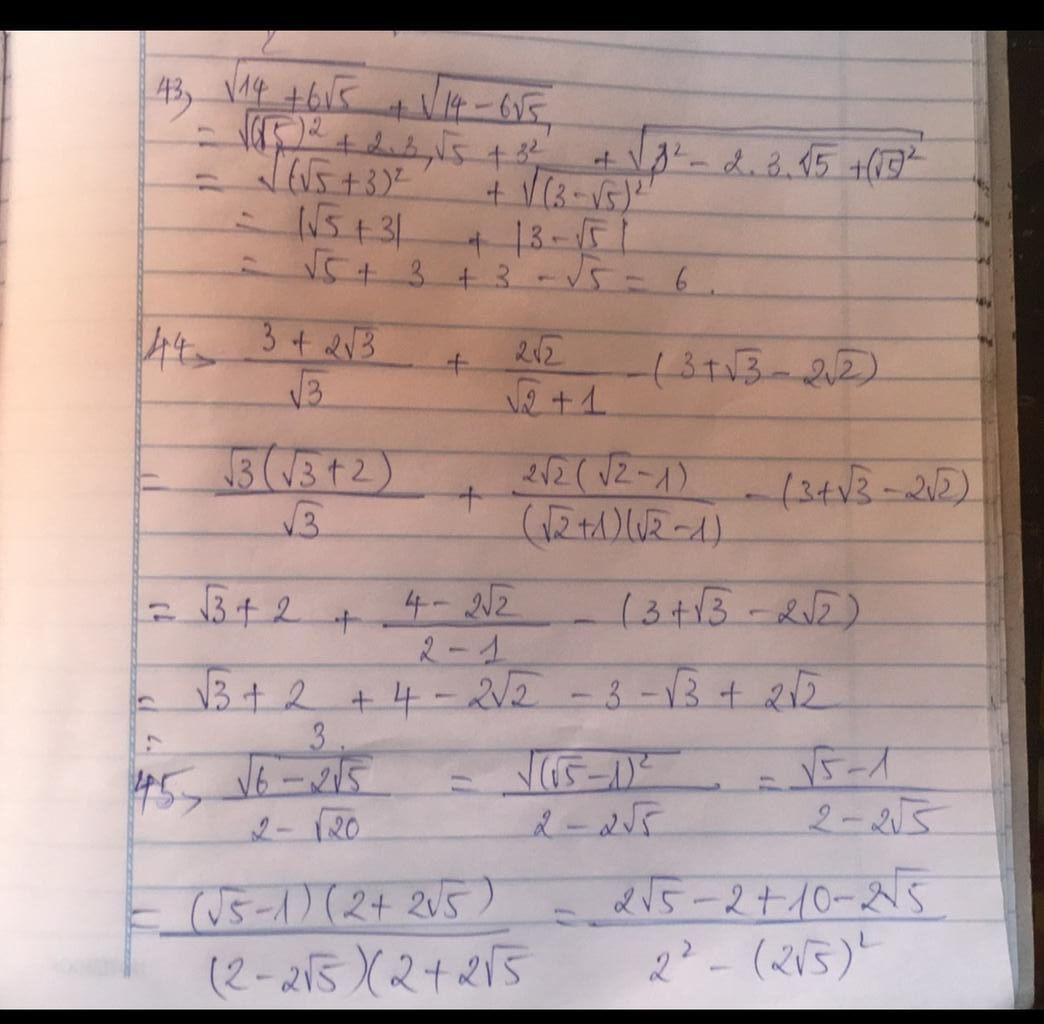 43, √(14 + 6√5) + √(14 - 6√5)
= √((√5)² + 2.3.√5 + 3²) + √(3² - 2.3.√5 + (√5)²)
= √((√5 + 3)²) + √((3 - √5)²)
= |√5 + 3| + |3 - √5|
= √5 + 3 + 3 - √5 = 6.
44, (3 + 2√3)/√3 + 2√2/(√2 + 1) - (3 + √3 - 2√2)
= √3(√3 + 2)/√3 + 2√2(√2 - 1)/((√2 + 1)(√2 - 1)) - (3 + √3 - 2√2)
= √3 + 2 + (4 - 2√2)/(2 - 1) - (3 + √3 - 2√2)
= √3 + 2 + 4 - 2√2 - 3 - √3 + 2√2
= 3.
45, √(6 - 2√5)/(2 - √20) = √((√5 - 1)²)/(2 - 2√5) = (√5 - 1)/(2 - 2√5)
= (√5 - 1)(2 + 2√5)/((2 - 2√5)(2 + 2√5) = (2√5 - 2 + 10 - 2√5)/(2² - (2√5)²)